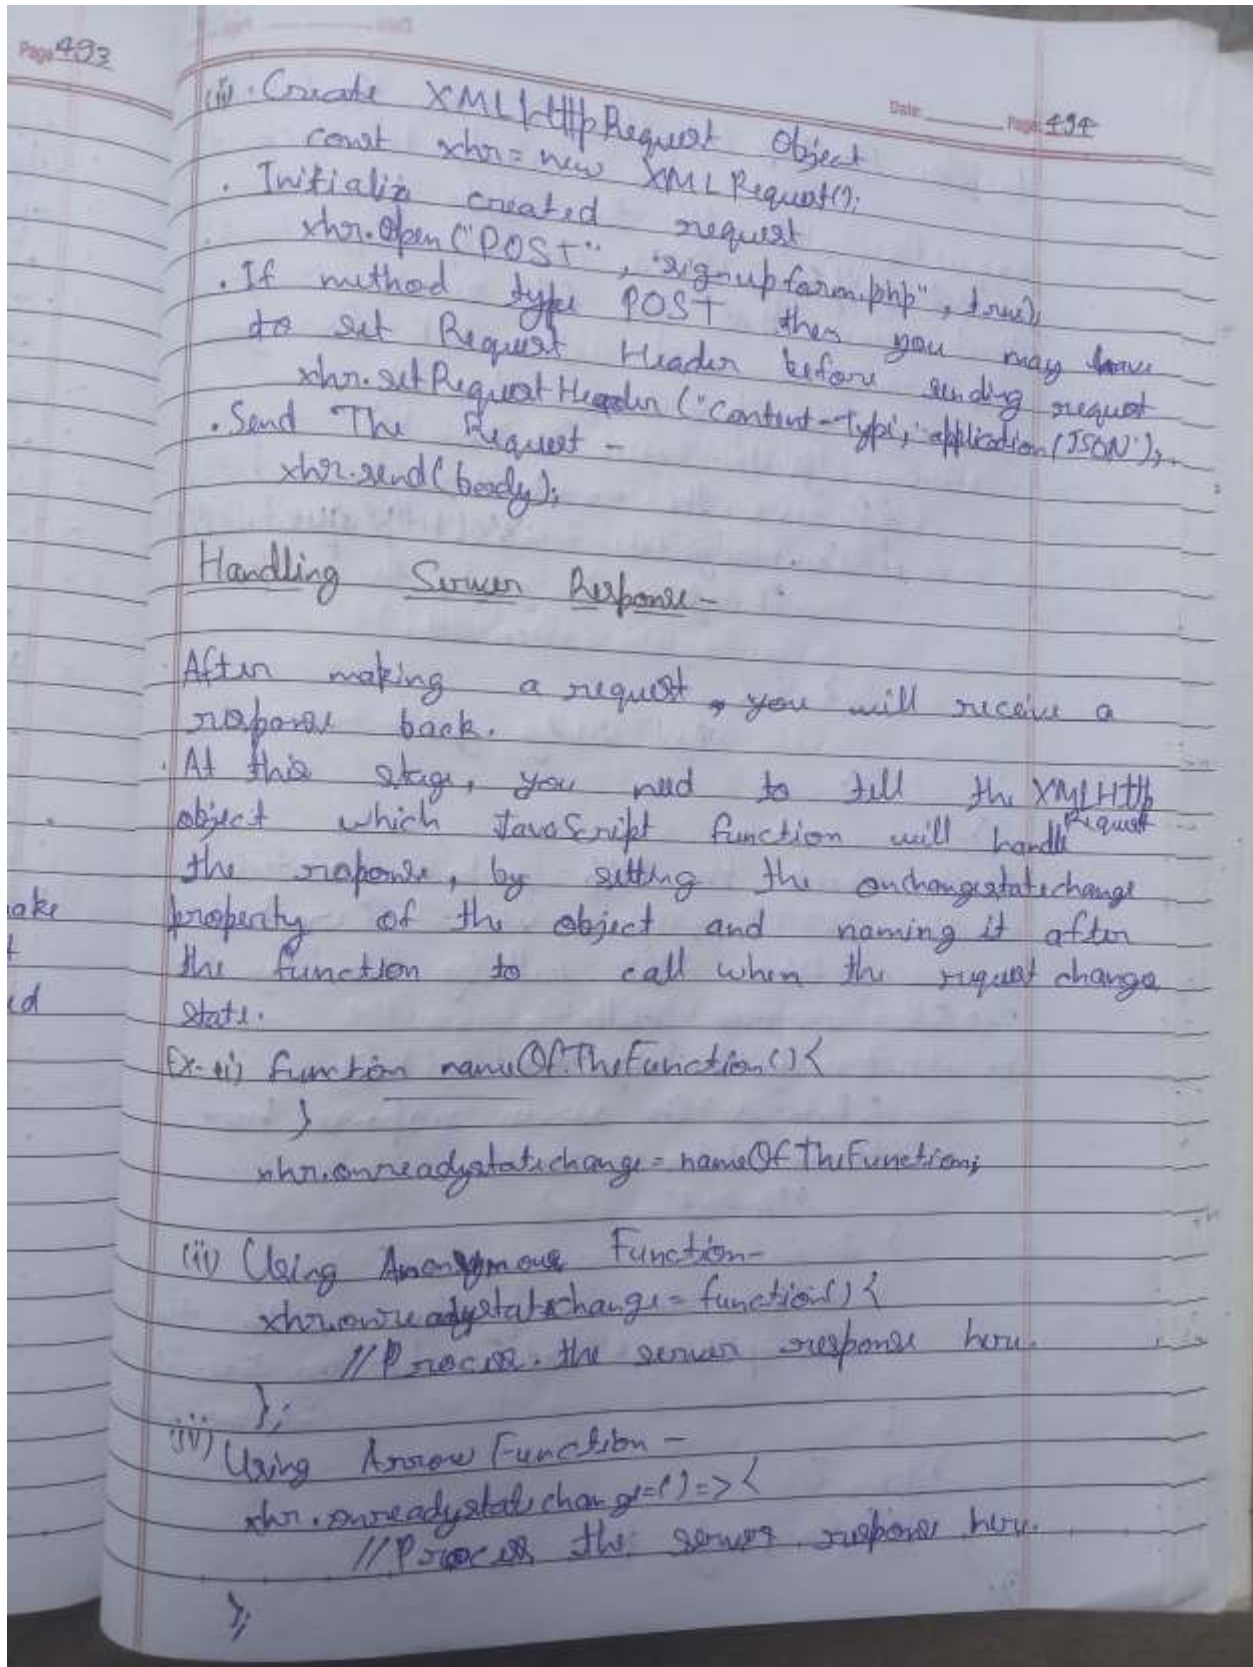 Page 493
Date: Page: 494
(ii) . Create XMLHttpRequest Object
const xhr = new XMLRequest();
. Initializ created request
xhr.open("POST", "signupform.php", true);
. If method type POST then you may have
to set Request Header before sending request
xhr.setRequestHeader("Content-Type", "application/JSON");
. Send The Request -
xhr.send(body);
Handling Server Response -
After making a request, you will receive a
response back.
. At this stage, you need to tell the XMLHttp
Request
object which JavaScript function will handle
the response, by setting the onchangestatechange
property of the object and naming it after
the function to call when the request change
state.
Ex- (i) function nameOfTheFunction() {
}
xhr.onreadystatechange = nameOfTheFunction;
(ii) Using Anonymous Function -
xhr.onreadystatechange = function() {
// Process the server response here.
};
(iii) Using Arrow Function -
xhr.onreadystatechange = () => {
// Process the server response here.
};
ake
t
ed